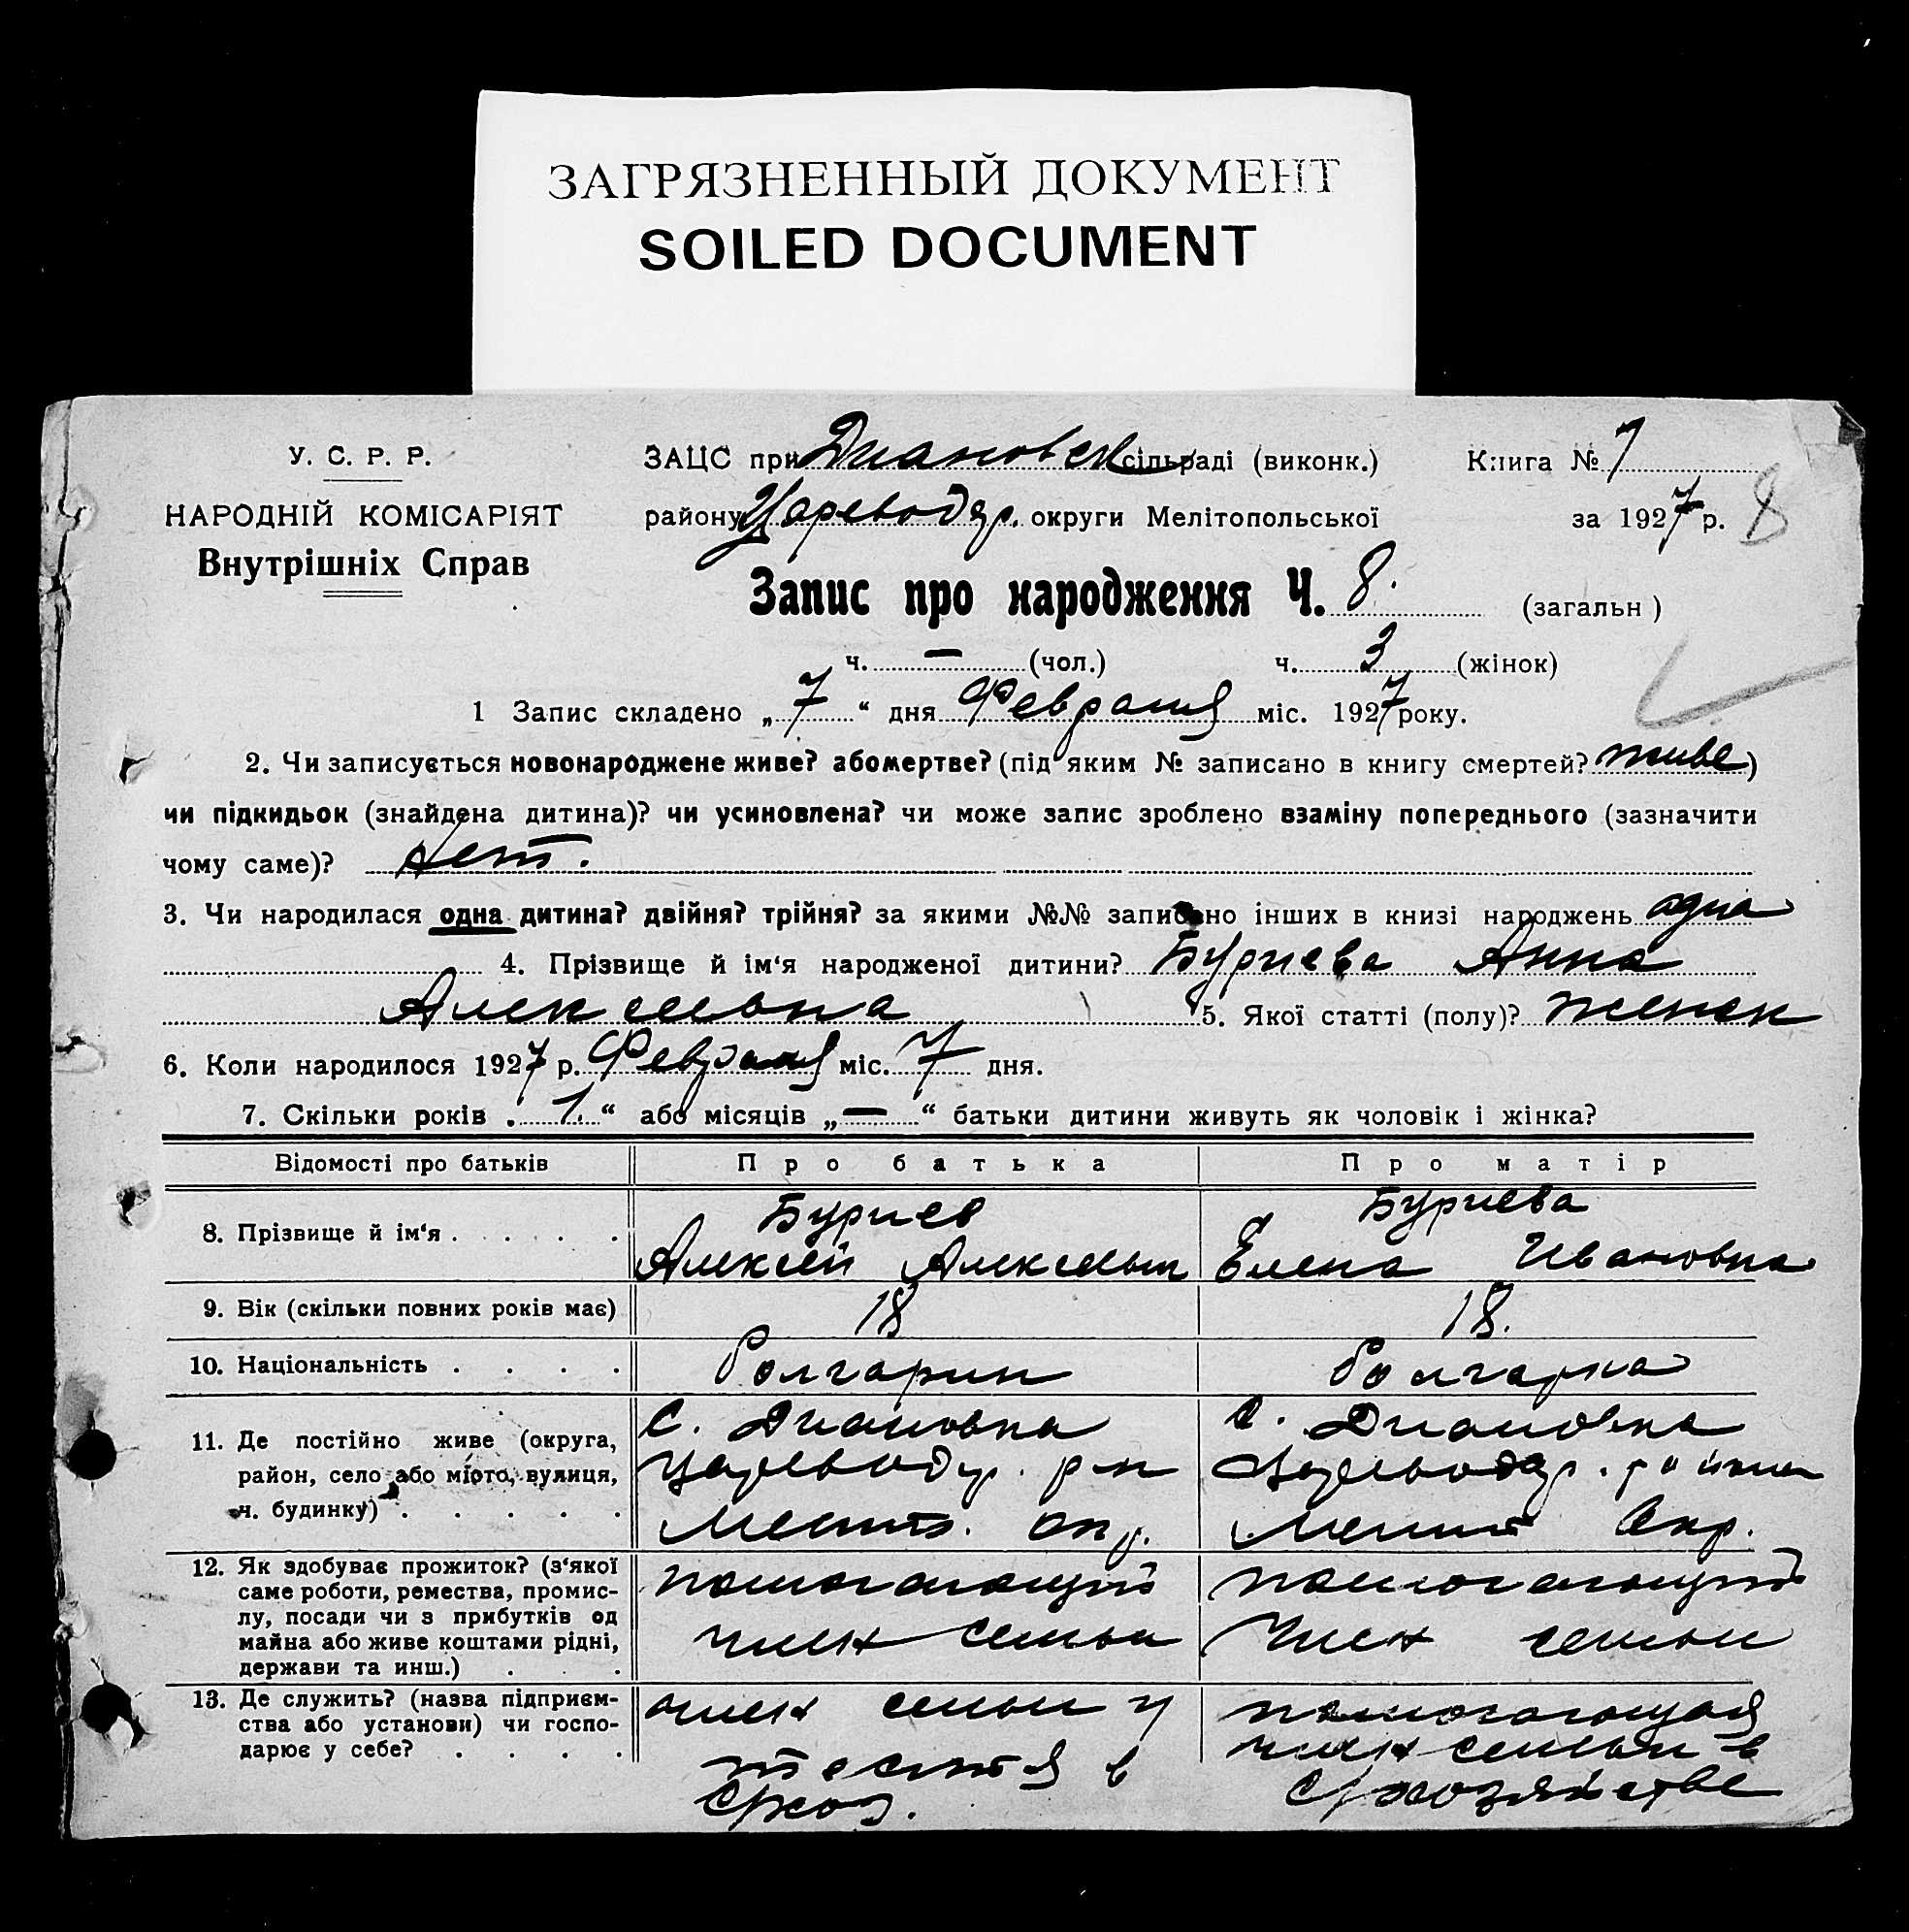 ЗАГРЯЗНЕННЫЙ ДОКУМЕНТ
SOILED DOCUMENT
У. С. Р. Р.
НАРОДНІЙ КОМІСАРІЯТ
Внутрішніх Справ
ЗАЦС при Диановск сільраді (виконк.) Книга № 7
району Цареводар. округи Мелітопольської за 1927 р. 8
Запис про народження Ч. 8. (загальн )
ч. — (чол.) ч. 3 (жінок)
1 Запис складено „ 7 “ дня Февраля міс. 1927 року.
2. Чи записується новонароджене живе? або мертве? (під яким № записано в книгу смертей? живе)
чи підкидьок (знайдена дитина)? чи усиновлена? чи може запис зроблено взаміну попереднього (зазначити
чому саме)? нет.
3. Чи народилася одна дитина? двійня? трійня? за якими №№ записано інших в книзі народжень одна
4. Прізвище й ім‘я народженої дитини? Буриева Анна
Алексеевна 5. Якої статті (полу)? женск
6. Коли народилося 1927 р. Февраля міс. 7 дня.
7. Скільки років „ 1. “ або місяців „ — “ батьки дитини живуть як чоловік і жінка?
Відомості про батьків Про батька Про матір
8. Прізвище й ім‘я . . . . . Буриев Буриева
Алексей Елена Ивановна
9. Вік (скільки повних років має) 18 18.
10. Національність . . . . болгарин болгарка
11. Де постійно живе (округа, с. Диановка с. Диановка
район, село або місто, вулиця, Цареводар. р-н Цареводар. района
ч. будинку) . . . . . Мелит. окр. Мелит Окр.
12. Як здобуває прожиток? (з‘якої помогающий помогающий
саме роботи, ремества, промис-
лу, посади чи з прибутків од
майна або живе коштами рідні, член семьи член семьи
держави та инш.) . . .
13. Де служить? (назва підприєм- член семьи у помогающая
ства або установи) чи госпо- член семьи в
дарює у себе? . . . . тестя в с/хозяйстве
с/хоз.